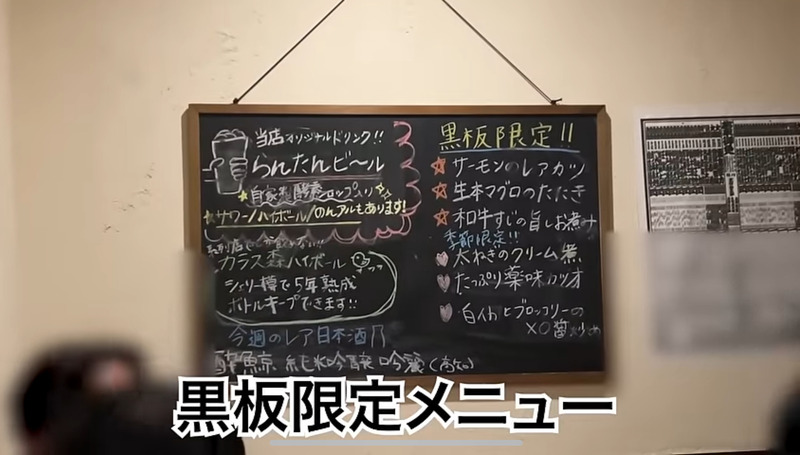 当店オリジナルドリンク!!
らんたんビール
自家製酵素シロップ入り
サワー/ハイボール/のんアルもあります!
カラス森ハイボール
シェリー樽で5年熟成
ボトルキープできます!!
今週のレア日本酒
酔鯨 純米吟醸 吟麗(高知)
黒板限定!!
サーモンのレアカツ
生本マグロのたたき
和牛すじの旨しお煮
季節限定!!
太ねぎのクリーム煮
たっぷり薬味カツオ
とブロッコリーの
XO醤炒め
黒板限定メニュー